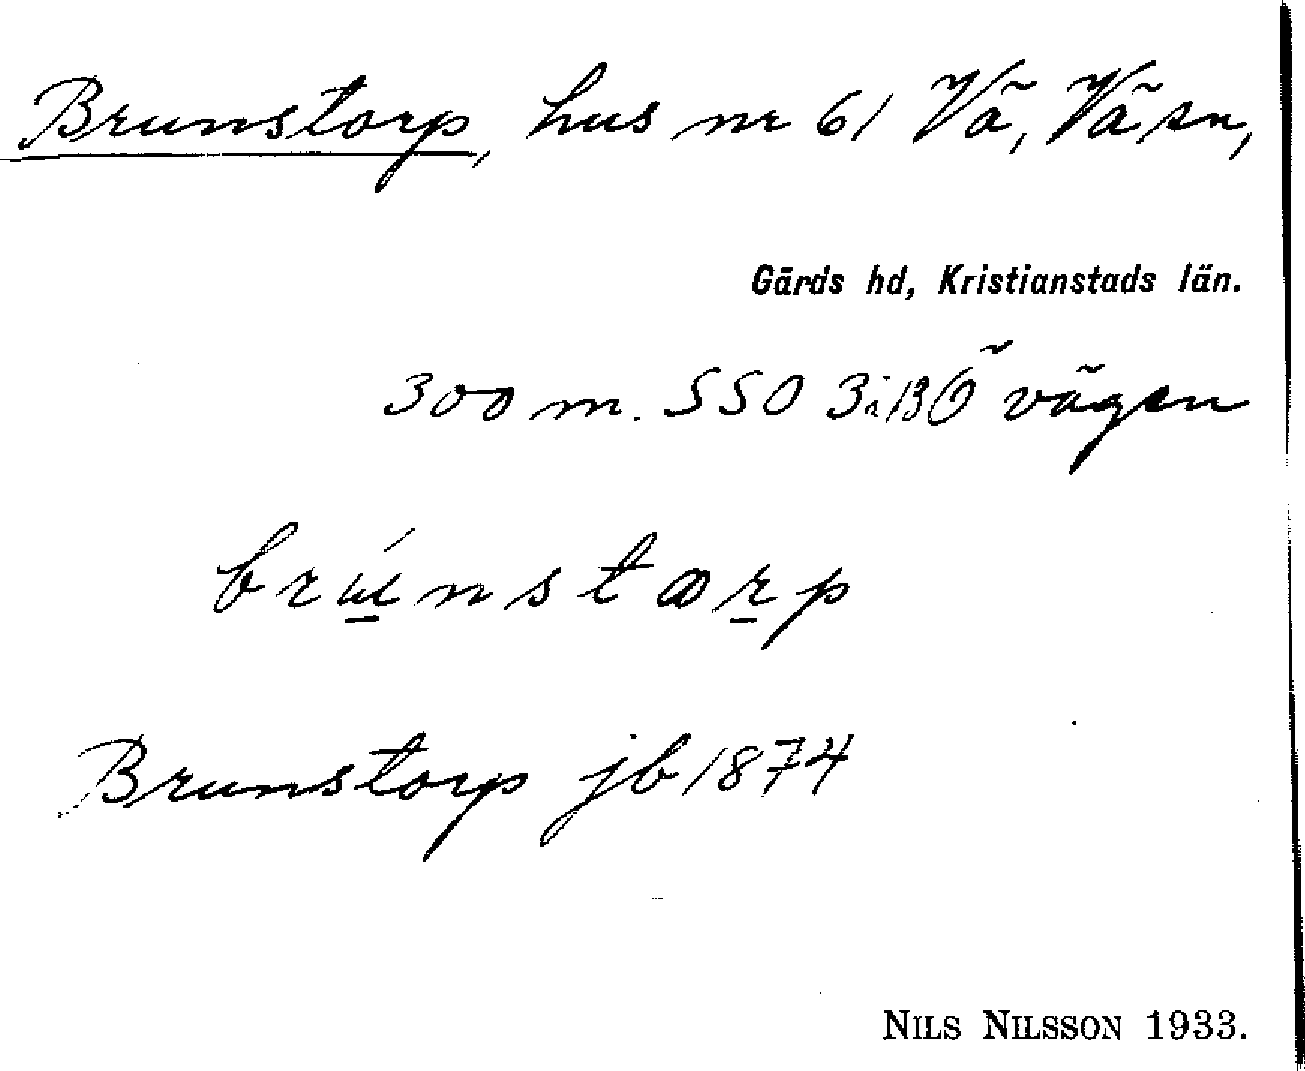 Brunstorp, hus nr 61 Vä, Vä sn,
Gärds hd, Kristianstads län.
300 m. SSO vägen
brúnstɷrp
Brunstorp jb 1874
NILS NILSSON 1933.